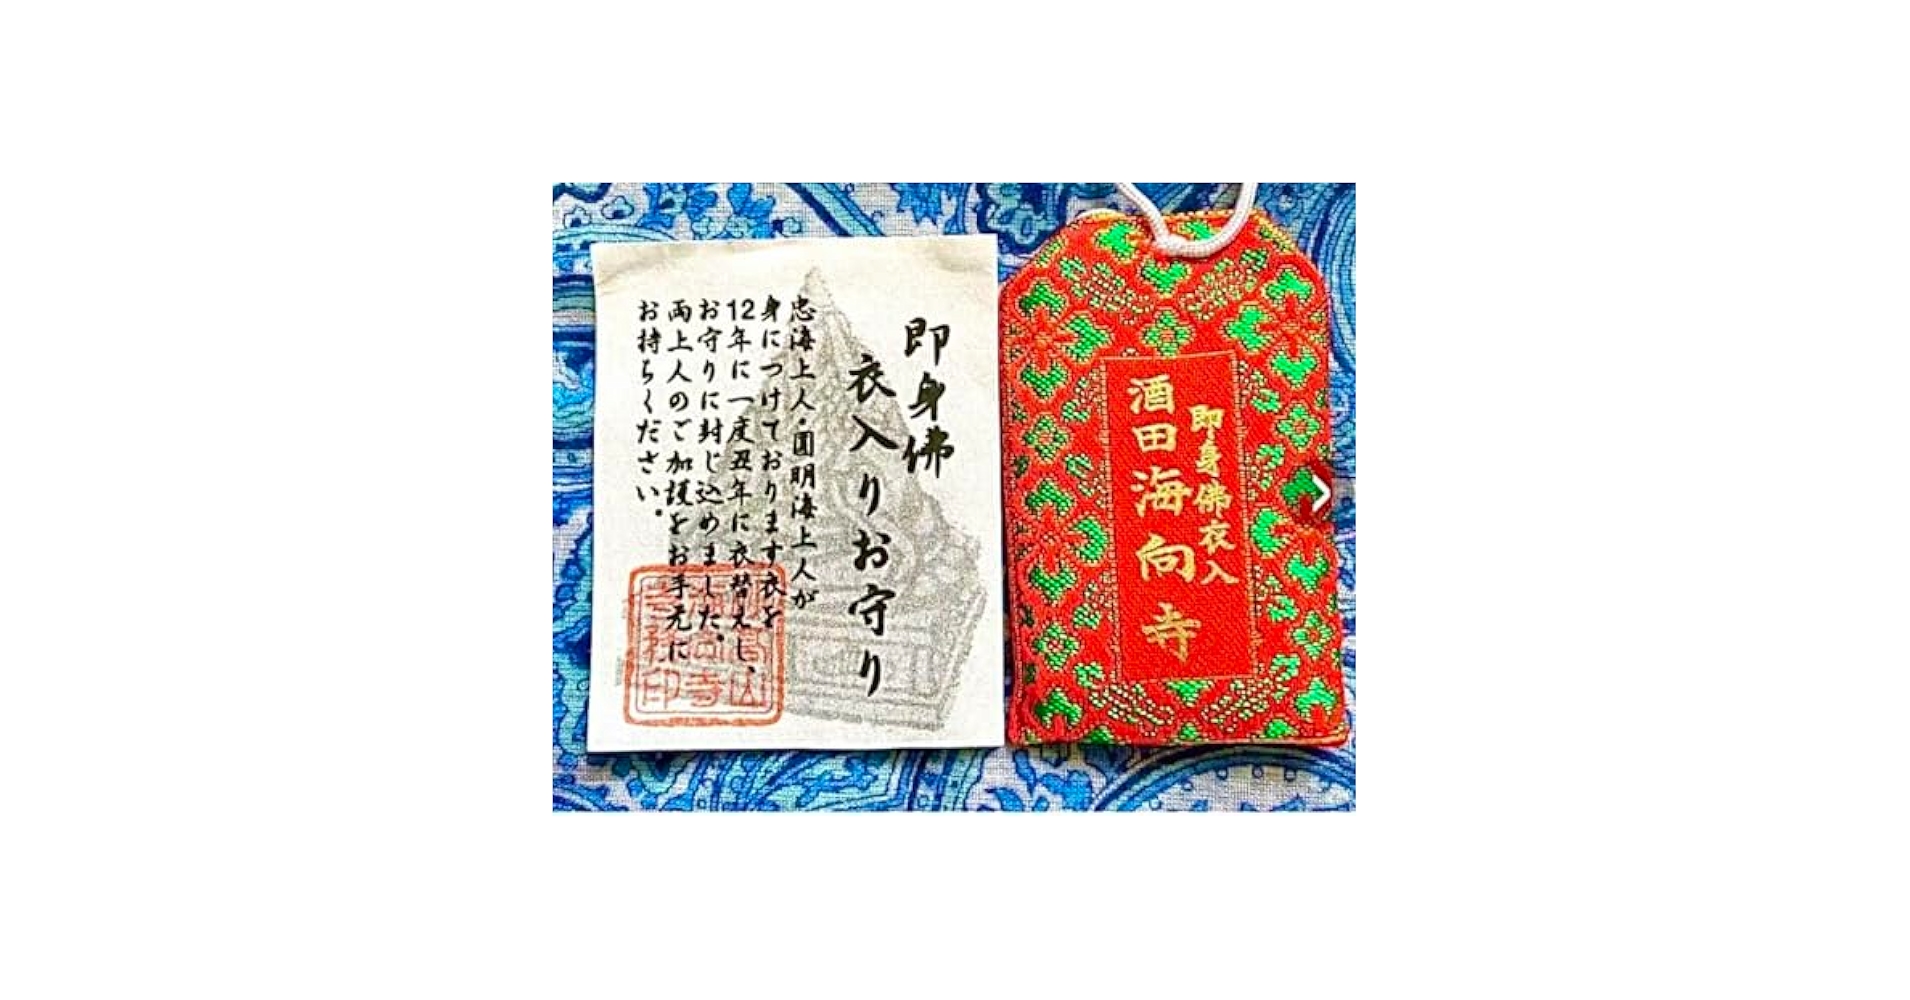 即身佛
衣入りお守り
忠海上人・圓明海上人が
身につけております衣を
12年に一度丑年に衣替えし、
お守りに封じ込めました。
両上人のご加護をお手元に
お持ちください。
即身佛衣入
酒田海向寺